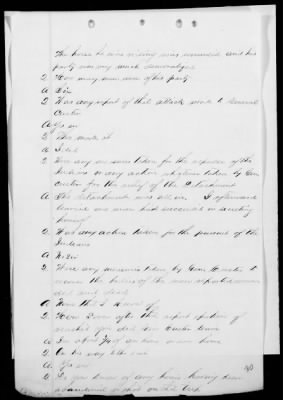 The horse he was riding was wounded and his
party was very much demoralized
Q How many men were of his party
A Six
Q Was any report of that attack made to General
Custer
A Yes sir
Q Who made it
A I did
Q Were any measures taken for the repulse of the
Indians or any action whatever taken by Gen
Custer for the relief of the Detachment
A The detachment was all in. I afterward
learned one man had succeeded in secreting
himself
Q Was any action taken for the pursuit of the
Indians
A No Sir
Q Were any measures taken by Gen Custer to
recover the bodies of the men reported wounded
and dead
A None that I know of
Q How soon after the report spoken of
was it you did see Custer
A In about of an hour or one hour
Q On his way
A Yes sir
Q Do you know of any horses having been
abandoned or shot on this trip